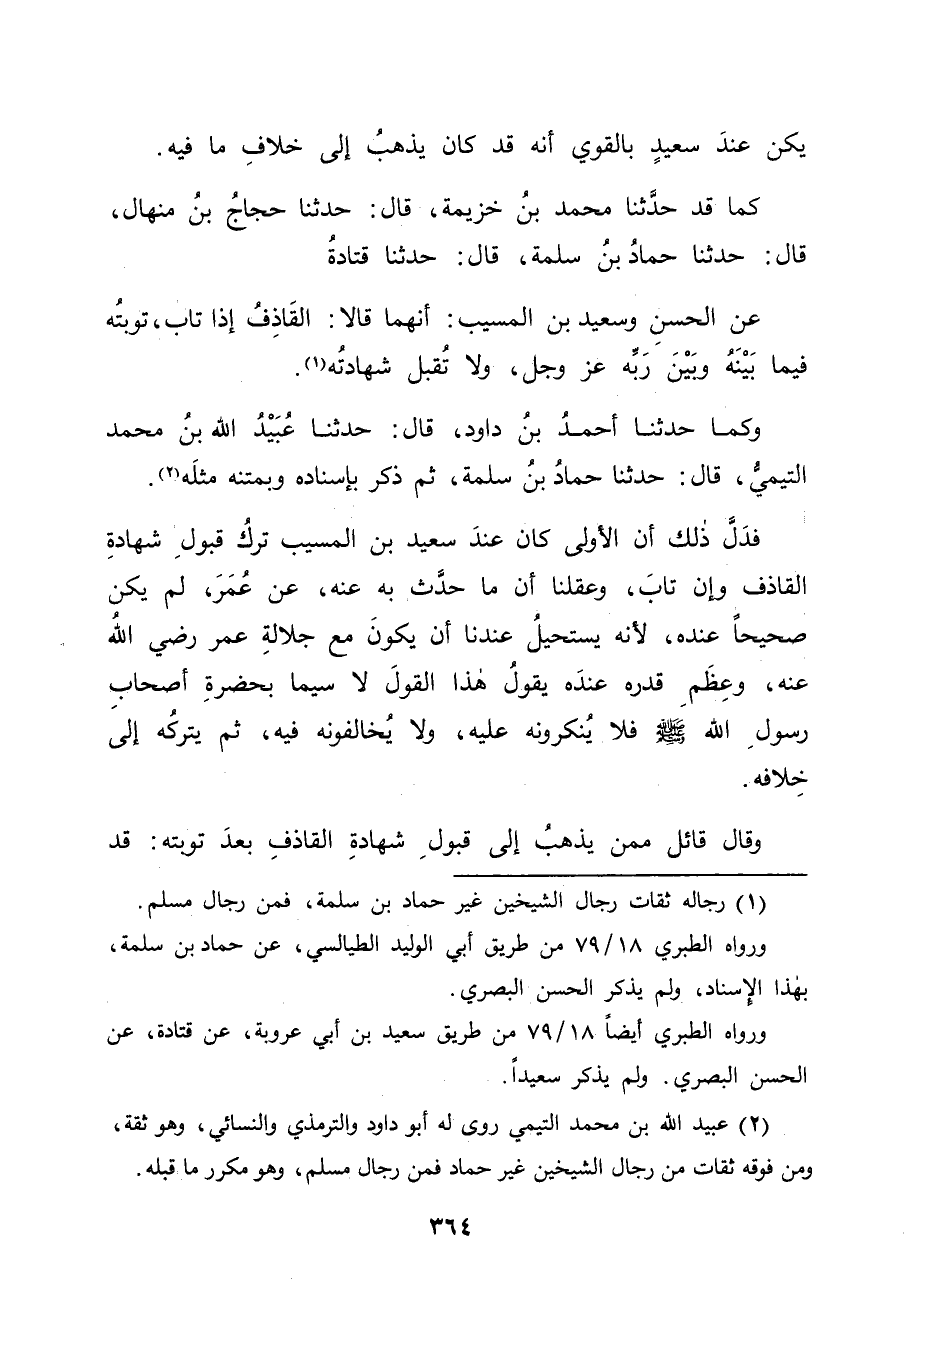 يكن عندَ سعيدٍ بالقوي أنه قد كان يذهبُ إلى خلافِ ما فيه.
كما قد حدَّثنا محمد بنُ خزيمة، قال: حدثنا حجاجُ بنُ منهال،
قال: حدثنا حمادُ بنُ سلمة، قال: حدثنا قتادةُ
عن الحسنِ وسعيد بن المسيب: أنهما قالا: القَاذِفُ إذا تاب، توبتُه
فيما بَيْنَهُ وبَيْنَ رَبِّه عز وجل، ولا تُقبل شهادتُه(١).
وكما حدثنا أحمدُ بنُ داود، قال: حدثنا عُبَيْدُ الله بنُ محمد
التيميُّ، قال: حدثنا حمادُ بنُ سلمة، ثم ذكر بإسناده وبمتنه مثلَه(٢).
فدَلَّ ذٰلك أن الأولى كان عندَ سعيد بن المسيب تركُ قبولِ شهادةِ
القاذف وإن تابَ، وعقلنا أن ما حدَّث به عنه، عن عُمَرَ، لم يكن
صحيحاً عنده، لأنه يستحيلُ عندنا أن يكونَ مع جلالةِ عمر رضي اللهُ
عنه، وعِظَمِ قدره عندَه يقولُ هٰذا القولَ لا سيما بحضرةِ أصحابِ
رسولِ الله ﷺ فلا يُنكرونه عليه، ولا يُخالفونه فيه، ثم يتركُه إلى
خِلافه.
وقال قائل ممن يذهبُ إلى قبولِ شهادةِ القاذفِ بعدَ توبته: قد
(١) رجاله ثقات رجال الشيخين غير حماد بن سلمة، فمن رجال مسلم.
ورواه الطبري ٧٩/١٨ من طريق أبي الوليد الطيالسي، عن حماد بن سلمة،
بهٰذا الإسناد، ولم يذكر الحسن البصري.
ورواه الطبري أيضاً ٧٩/١٨ من طريق سعيد بن أبي عروبة، عن قتادة، عن
الحسن البصري. ولم يذكر سعيداً.
(٢) عبيد الله بن محمد التيمي روى له أبو داود والترمذي والنسائي، وهو ثقة،
ومن فوقه ثقات من رجال الشيخين غير حماد فمن رجال مسلم، وهو مكرر ما قبله.
٣٦٤